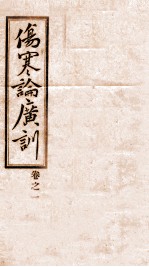 傷寒論廣訓
卷之一